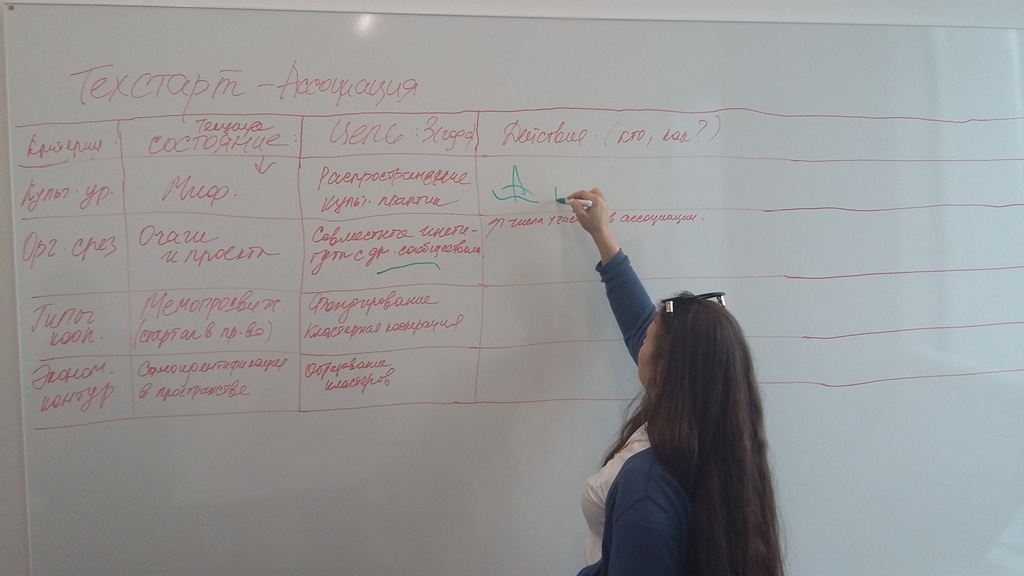 Техстарт - Ассоциация
Критерии:
Текущее
состояние:
Цель: 3 (года)
Действие: (кто, как?)
Культ. ур.
Миф.
Распространение
культ. практик
Орг. срез
Очаги
и проекты
Совместно
с др. сообществами
числа в ассоциации.
Типы
кооп.
(стартап в пр-во)
Фондирование
Кластерная кооперация
Эконом.
контур
Самоидентификация
в пространстве
Образование
кластеров